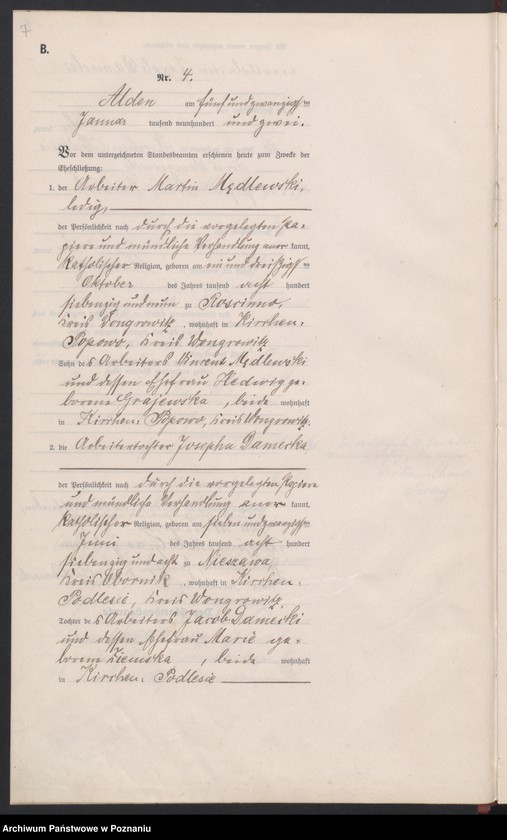 B.
Nr. 4.
Alden am fünfundzwanzigsten
Januar tausend neunhundert und zwei.
Vor dem unterzeichneten Standesbeamten erschienen heute zum Zwecke der
Eheschließung:
1. der Arbeiter Martin Mędlewski,
ledig,
der Persönlichkeit nach durch die vorgelegten Pa-
piere und mündliche Verhandlung aner kannt,
katholischer Religion, geboren am ein und dreißigsten
Oktober des Jahres tausend acht hundert
siebenzig und neun zu Roscinno,
Kreis Wongrowitz, wohnhaft in Kirchen-
Popowo, Kreis Wongrowitz
Sohn des Arbeiters Vincent Mędlewski
und dessen Ehefrau Hedwig ge-
borene Grajewska, beide wohnhaft
in Kirchen-Popowo, Kreis Wongrowitz.
2. die Arbeitertochter Josepha Damerska
der Persönlichkeit nach durch die vorgelegten Papiere
und mündliche Verhandlung aner kannt,
katholischer Religion, geboren am sieben und zwanzigsten
Juni des Jahres tausend acht hundert
siebenzig und acht zu Nieszawa,
Kreis Obornik, wohnhaft in Kirchen-
Podlesie, Kreis Wongrowitz,
Tochter des Arbeiters Jacob Damerski
und dessen Ehefrau Marie ge-
borene Ziemska, beide wohnhaft
in Kirchen-Podlesie
Archiwum Państwowe w Poznaniu